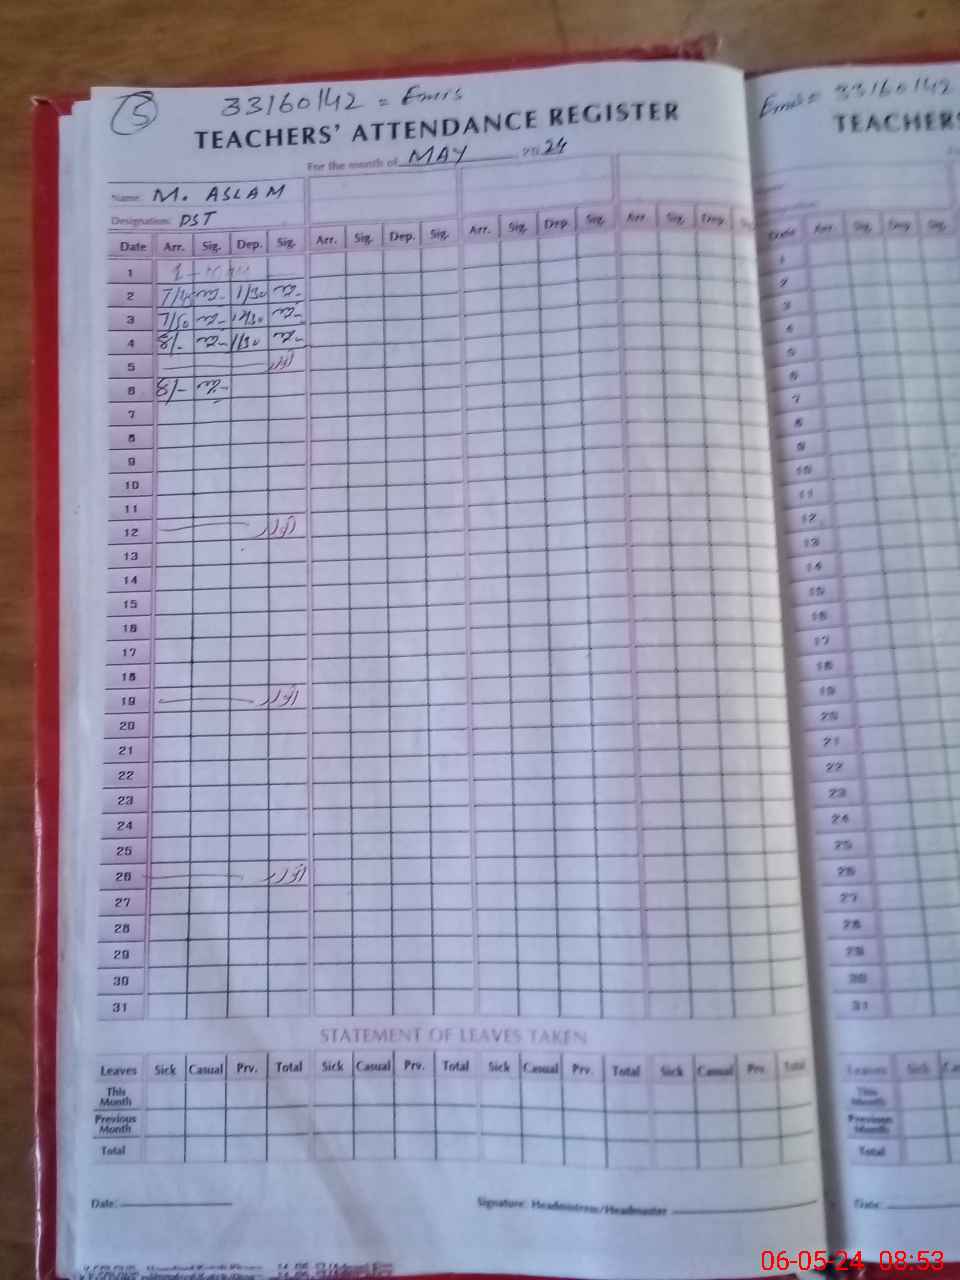 5 33160142 = Emis
Emis = 33160142
TEACHERS' ATTENDANCE REGISTER
TEACHERS
For the month of MAY 2024
Name: M. ASLAM
Designation: DST
Date Arr. Sig. Dep. Sig. Arr. Sig. Dep. Sig. Arr. Sig. Dep. Sig. Arr. Sig. Dep. Sig.
1
2 1/30
3 7/50 12/30
4 8/- 1/30
5 اتوار
6 8/-
7
8
9
10
11
12 اتوار
13
14
15
16
17
18
19 اتوار
20
21
22
23
24
25
26 اتوار
27
28
29
30
31
Date Arr. Sig. Dep. Sig.
1
2
3
4
5
6
7
8
9
10
11
12
13
14
15
16
17
18
19
20
21
22
23
24
25
26
27
28
29
30
31
STATEMENT OF LEAVES TAKEN
Leaves Sick Casual Prv. Total Sick Casual Prv. Total Sick Casual Prv. Total Sick Casual Prv. Total
This Month
Previous Month
Total
Leaves Sick
This Month
Previous Month
Total
Date: Signature: Headmistress/Headmaster
Date:
06-05-24 08:53